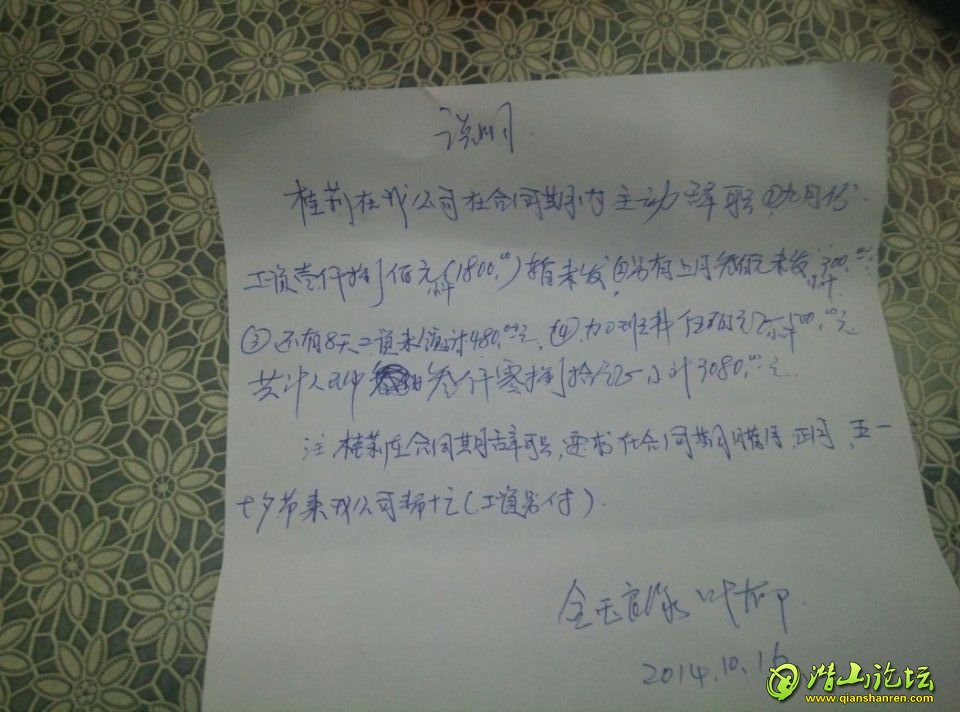 说明
桂莉在我公司在合同期内主动辞职①九月份
工资壹仟捌佰元(1800.00)暂未发,②另有上月叁佰元未发,300.00
③还有8天工资未 计480.00元,④加班 伍佰元 500.00元
共计人民币 叁仟零捌拾元 小计3080.00元
注:桂莉在合同期辞职,要求在合同期腊月,正月,五一
七夕节来我公司帮忙(工资另付).
金玉良缘 叶柳
2014.10.16
潜山论坛
www.qianshanren.com